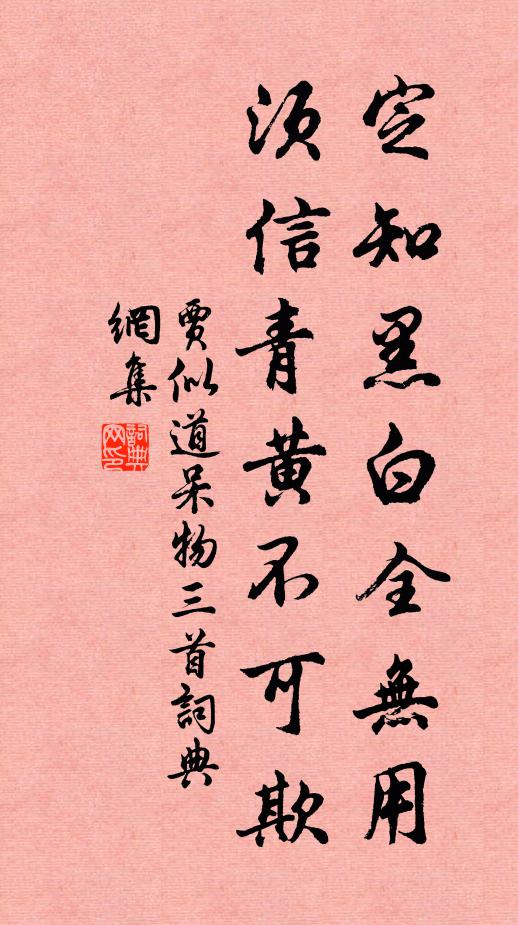 定知黑白全無用
須信青黃不可欺
賈似道呆物三首詞典
網集
詞典
网印